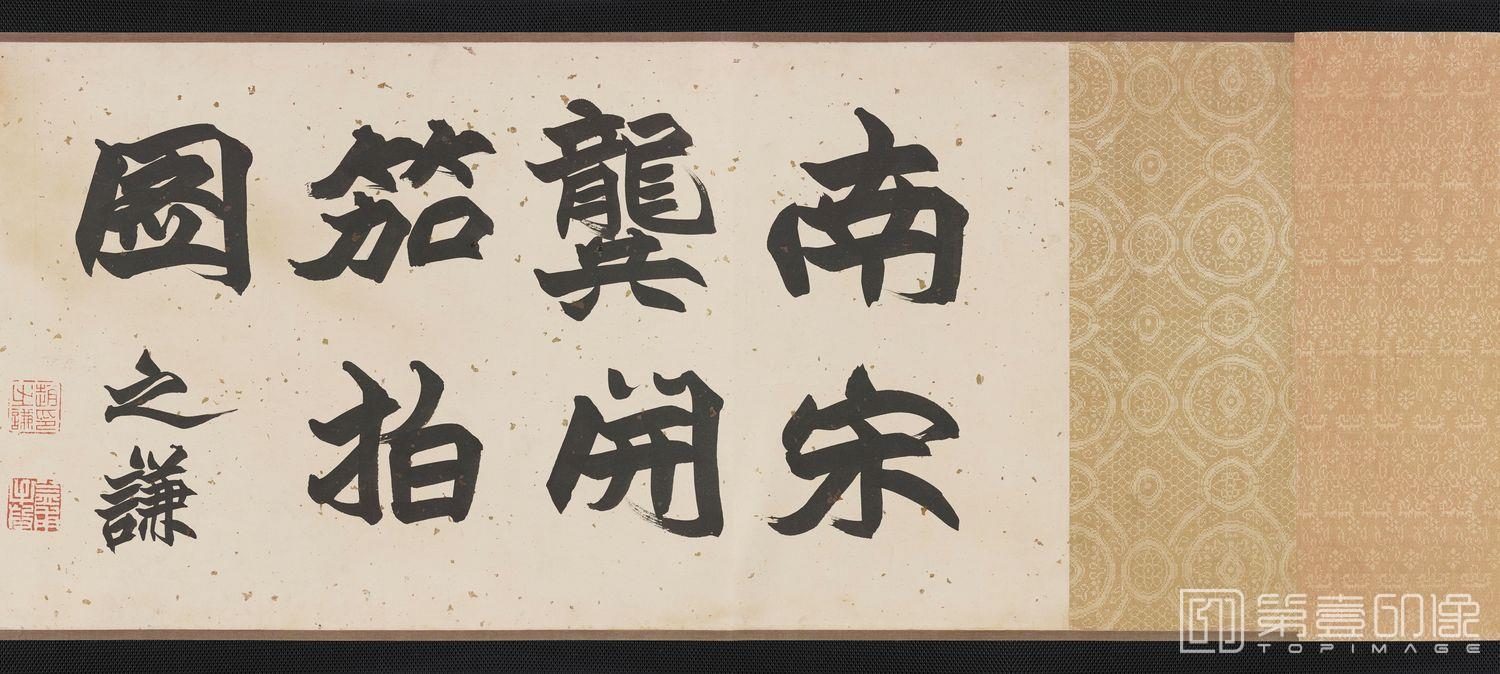 南宋
龔開
笳拍
圖
之謙
趙之謙印
第壹印像
TOPIMAGE